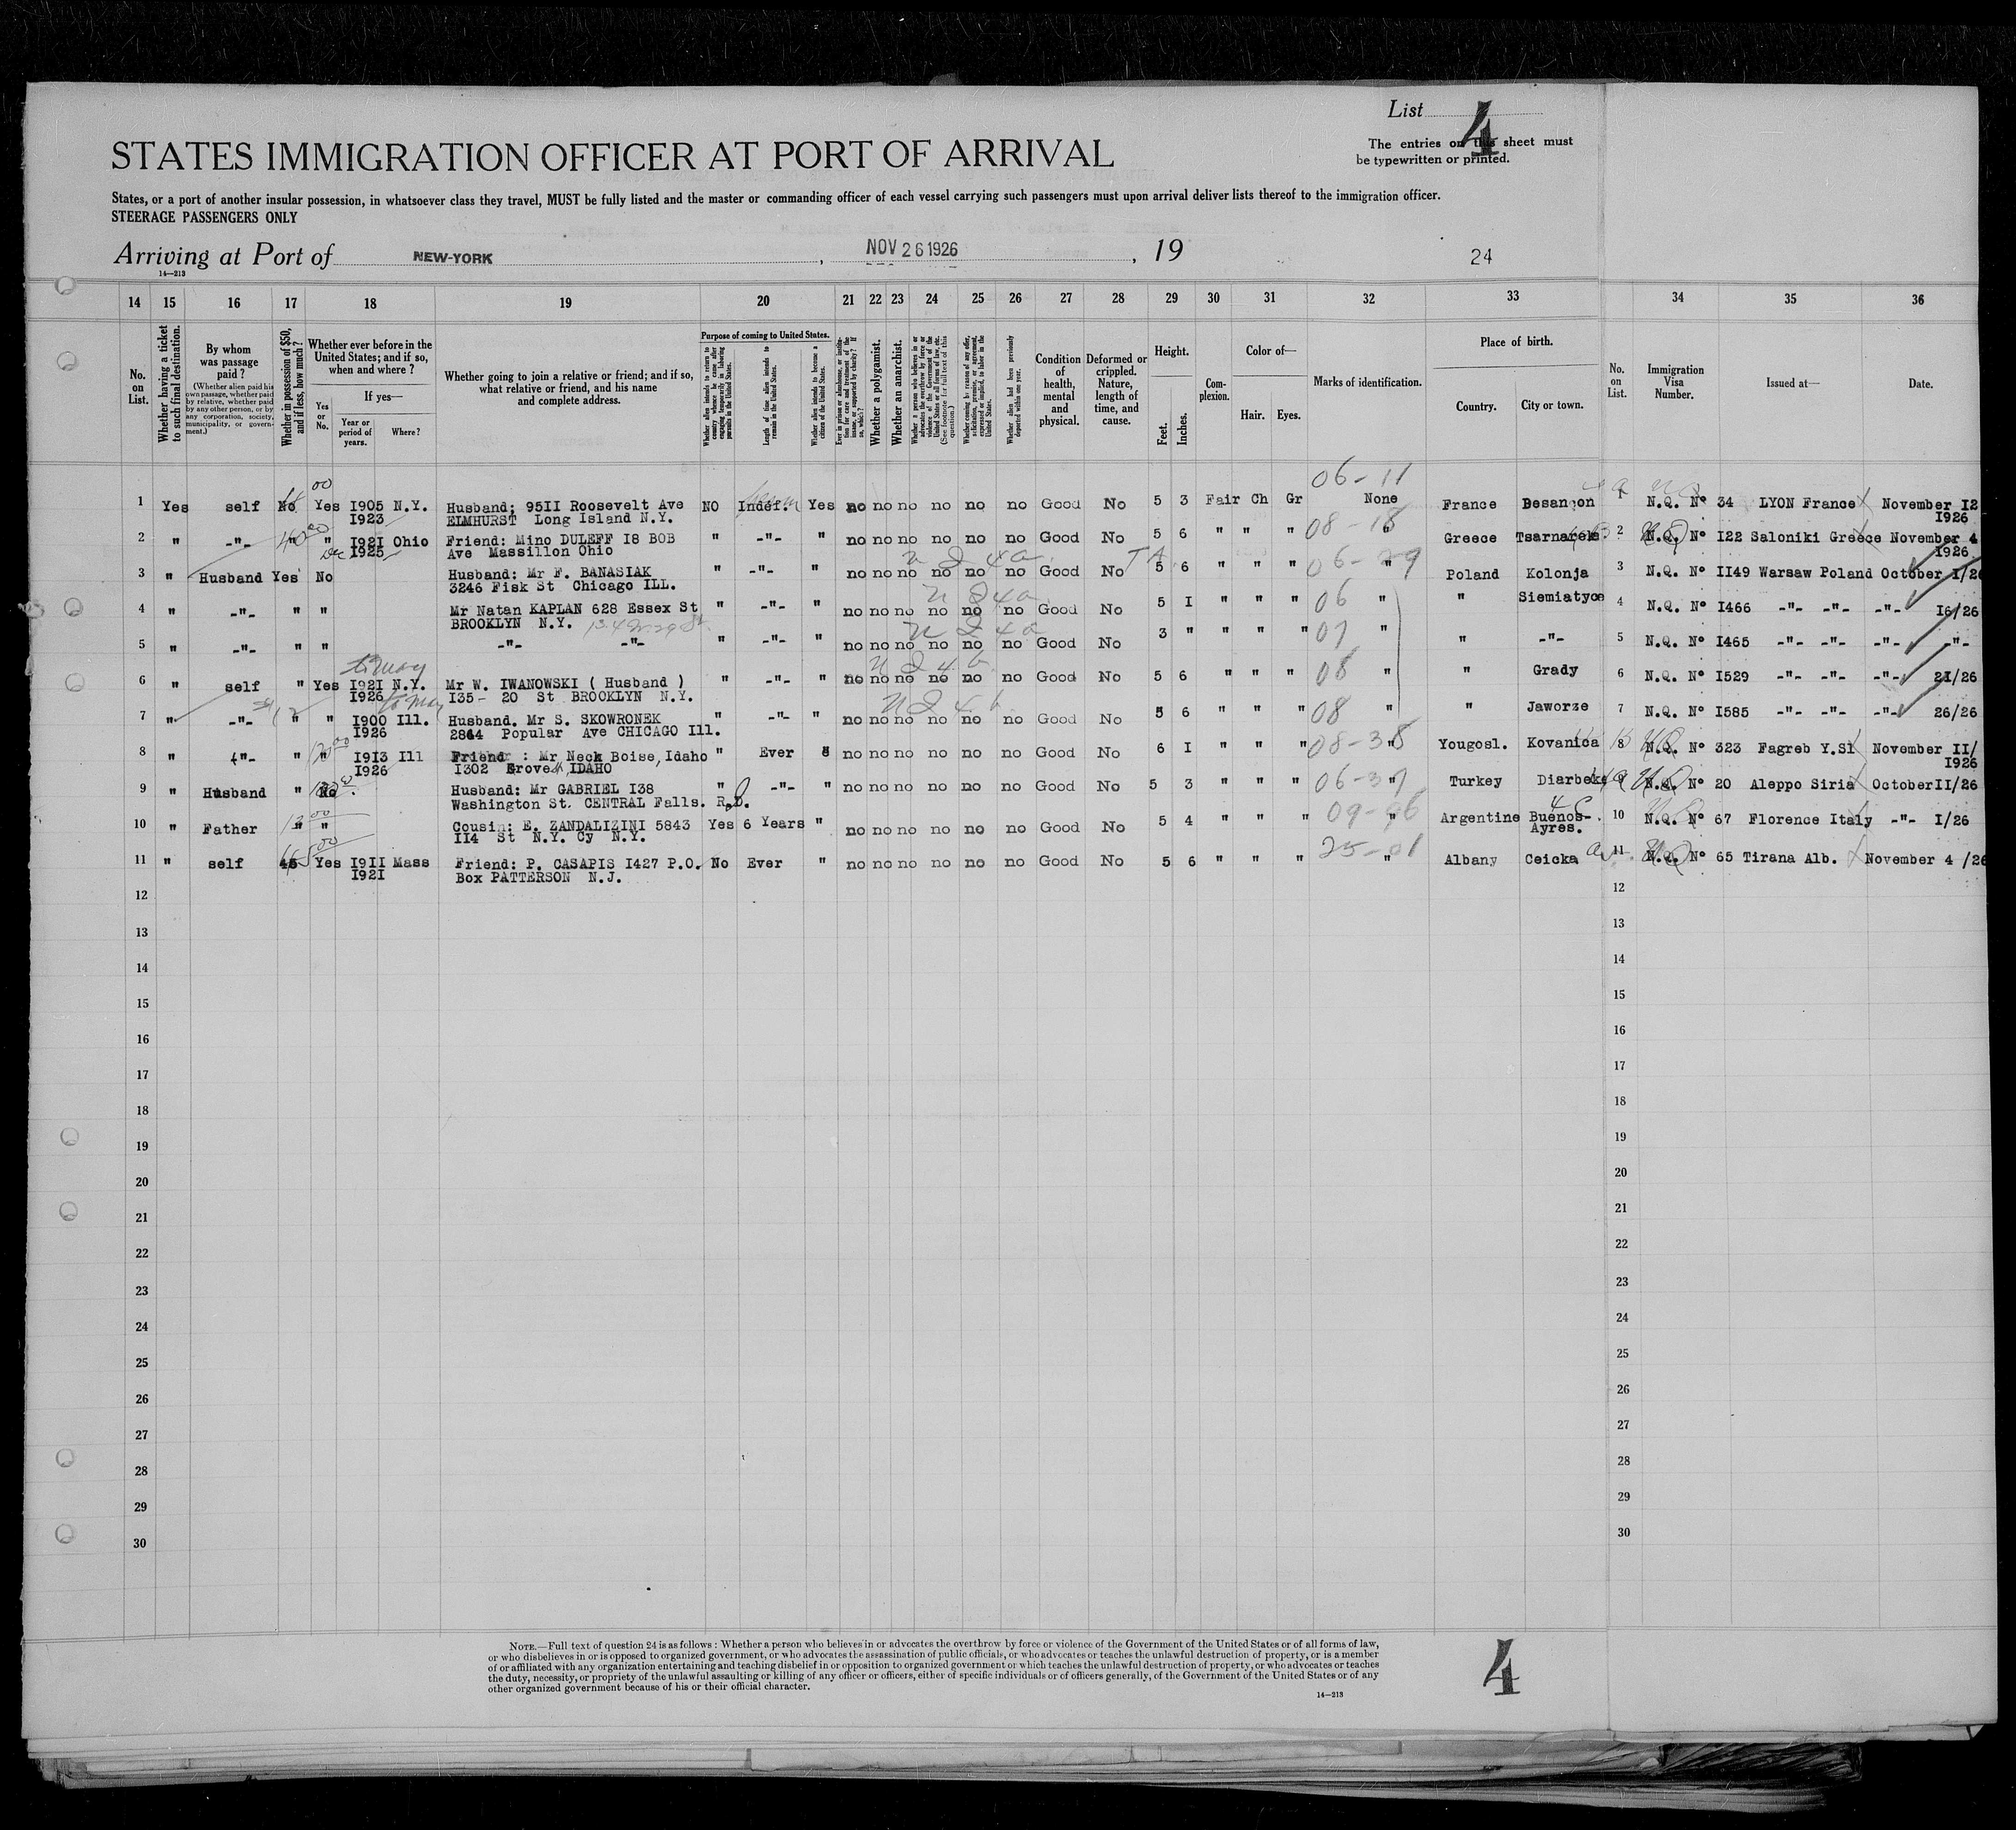 List 4
The entries on this sheet must
be typewritten or printed.
STATES IMMIGRATION OFFICER AT PORT OF ARRIVAL
States, or a port of another insular possession, in whatsoever class they travel, MUST be fully listed and the master or commanding officer of each vessel carrying such passengers must upon arrival deliver lists thereof to the immigration officer.
STEERAGE PASSENGERS ONLY
Arriving at Port of NEW-YORK, NOV 26 1926, 19 24
14—213
14 15 16 17 18 19 20 21 22 23 24 25 26 27 28 29 30 31 32 33 34 35 36
No. on List.
Whether having a ticket to such final destination.
By whom was passage paid?
(Whether alien paid his own passage, whether paid by relative, whether paid by any other person, or by any corporation, society, municipality, or government.)
Whether in possession of $50, and if less, how much?
Whether ever before in the United States; and if so, when and where?
Yes or No.
If yes—
Year or period of years.
Where?
Whether going to join a relative or friend; and if so, what relative or friend, and his name and complete address.
Purpose of coming to United States.
Whether alien intends to return to country whence he came after engaging temporarily in laboring pursuits in the United States.
Length of time alien intends to remain in the United States.
Whether alien intends to become a citizen of the United States.
Whether a polygamist.
Whether an anarchist.
Condition of health, mental and physical.
Deformed or crippled. Nature, length of time, and cause.
Height.
Feet.
Inches.
Complexion.
Color of—
Hair.
Eyes.
Marks of identification.
Place of birth.
Country.
City or town.
No. on List.
Immigration Visa Number.
Issued at—
Date.
06-11
1 Yes self No Yes I905 N.Y. Husband; 95II Roosevelt Ave NO Indéf. Yes no no no no no no Good No 5 3 Fair Ch Gr None France Besançon 1 N.Q. Nº 34 LYON France November I2
I923 ELMHURST Long Island N.Y. I926
2 " -"- " " I92I Ohio Friend: Mino DULEFF I8 BOB " -"- " no no no no no no Good No 5 6 " " " 08-18 " Greece Tsarnareks 2 N.Q. Nº I22 Saloniki Greece November 4
Dec I925 Ave Massillon Ohio I926
3 " Husband Yes No Husband: Mr F. BANASIAK " -"- " no no no no no no Good No 5 6 " " " 06-29 " Poland Kolonja 3 N.Q. Nº II49 Warsaw Poland October I/26
3246 Fisk St Chicago ILL.
4 " -"- " " Mr Natan KAPLAN 628 Essex St " -"- " no no no no no no Good No 5 I " " " 06 " " Siemiatyce 4 N.Q. Nº I466 -"- -"- -"- I6/26
BROOKLYN N.Y.
5 " -"- " " -"- -"- " -"- " no no no no no no Good No 3 " " " " 07 " " -"- 5 N.Q. Nº I465 -"- -"- -"- -"-
6 " self " Yes I92I N.Y. Mr W. IWANOWSKI ( Husband ) " -"- " no no no no no no Good No 5 6 " " " 08 " " Grady 6 N.Q. Nº I529 -"- -"- -"- 2I/26
I926 I35- 20 St BROOKLYN N.Y.
7 " -"- " " I900 Ill. Husband. Mr S. SKOWRONEK " -"- " no no no no no no Good No 5 6 " " " 08 " " Jaworze 7 N.Q. Nº I585 -"- -"- -"- 26/26
I926 2844 Popular Ave CHICAGO Ill.
8 " -"- " " I9I3 Ill Friend : Mr Neck Boise, Idaho " Ever " no no no no no no Good No 6 I " " " 08-38 " Yougosl. Kovanica 8 N.Q. Nº 323 Fagreb Y.Sl November II/
I926 I302 Grove, IDAHO I926
9 " Husband " No Husband: Mr GABRIEL I38 -"- " no no no no no no Good No 5 3 " " " 06-37 " Turkey Diarbeke 9 N.Q. Nº 20 Aleppo Siria October II/26
Washington St. CENTRAL Falls.
10 " Father " " Cousin: E. ZANDALIZINI 5843 Yes 6 Years " no no no no no no Good No 5 4 " " " 09-96 " Argentine Buenos- 10 N.Q. Nº 67 Florence Italy -"- I/26
II4 St N.Y. Cy N.Y. Ayres.
11 " self 45 Yes I9II Mass Friend: P. CASAPIS I427 P.O. No Ever " no no no no no no Good No 5 6 " " " 25-01 " Albany Ceicka 11 N.Q. Nº 65 Tirana Alb. November 4 /26
I92I Box PATTERSON N.J.
12 12
13 13
14 14
15 15
16 16
17 17
18 18
19 19
20 20
21 21
22 22
23 23
24 24
25 25
26 26
27 27
28 28
29 29
30 30
NOTE.—Full text of question 24 is as follows: Whether a person who believes in or advocates the overthrow by force or violence of the Government of the United States or of all forms of law,
or who disbelieves in or is opposed to organized government, or who advocates the assassination of public officials, or who advocates or teaches the unlawful destruction of property, or is a member
of or affiliated with any organization entertaining and teaching disbelief in or opposition to organized government or which teaches the unlawful destruction of property, or who advocates or teaches
the duty, necessity, or propriety of the unlawful assaulting or killing of any officer or officers, either of specific individuals or of officers generally, of the Government of the United States or of any
other organized government because of his or their official character.
14—213
4